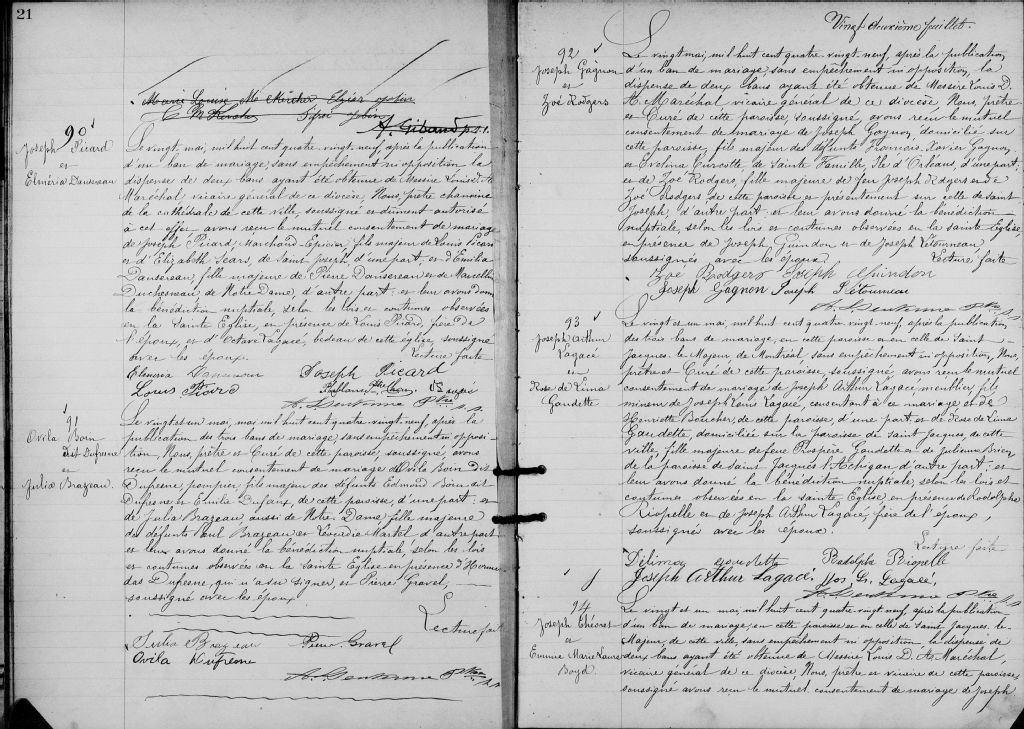 21
Marie Louise McKircher Elzéar
A. Giband p.s.s.
90
Joseph Picard
et
Elméria Dansereau
Le vingt, mai, mil huit cent quatre vingt neuf, après la publication
d'un ban de mariage, sans empêchement ni opposition la
dispense de deux bans ayant été obtenue de Messire Louis D. A.
Maréchal vicaire général de ce diocèse, Nous, prêtre chanoine
de la cathédrale de cette ville, soussigné et dûment autorisé
à cet effet avons reçu le mutuel consentement de mariage
de Joseph Picard, Marchand-Epicier, fils majeur de Louis Picard
et d'Elizabeth Sears, de Saint Joseph, d'une part, et d'Emilia
Dansereau, fille majeure de Pierre Dansereau et de Marcelline
Duchesneau, de Notre Dame, d'autre part, et leur avons donné
la bénédiction nuptiale, selon les lois et coutumes observées
en la Sainte Eglise, en présence de Louis Picard, père de
l'époux, et d'Octave Lagacé, bedeau de cette église, soussigné
avec les époux.
Lecture faite
Joseph Picard
Louis Picard
91
Ovila Born
dit Dufresne
et
Julia Brazeau.
Le vingt et un mai, mil huit cent quatre vingt neuf, après la
publication des trois bans de mariage, sans empêchement ni opposi-
tion, Nous, prêtre et Curé de cette paroisse, soussigné, avons
reçu le mutuel consentement de mariage d'Ovila Born dit
Dufresne, pompier, fils majeur des défunts Edmond Born dit
Dufresne et Emilie Dufaux, de cette paroisse d'une part, et
de Julia Brazeau, aussi de Notre-Dame, fille majeure
des défunts Paul Brazeau et Léocadie Martel d'autre part
et leur avons donné la bénédiction nuptiale, selon les lois
et coutumes observées en la Sainte Eglise en présence d'Hormis-
das Dufresne, qui n'a su signer, et Pierre Gravel,
soussigné avec les époux.
Lecture faite
Julia Brazeau Pierre Gravel
Ovila Dufresne
Vingt deuxième feuillet.
92
Joseph Gagnon
et
Zoé Rodgers
Le vingt mai, mil huit cent quatre vingt neuf, après la publication
d'un ban de mariage, sans empêchement ni opposition, la
dispense de deux bans ayant été obtenue de Messire Louis D.
A. Maréchal vicaire général de ce diocèse, Nous, prêtre
et Curé de cette paroisse, soussigné, avons reçu le mutuel
consentement de mariage de Joseph Gagnon, domicilié sur
cette paroisse, fils majeur des défunts François Xavier Gagnon
et Evelina Turcotte de Sainte Famille, Ile d'Orléans, d'une part,
et de Zoé Rodgers, fille majeure de feu Joseph Rodgers et de
Zoé Rodgers, de cette paroisse et présentement sur celle de Saint
Joseph, d'autre part, et leur avons donné la bénédiction
nuptiale, selon les lois et coutumes observées en la sainte Eglise,
en présence de Joseph Guindon et de Joseph Létourneau
soussignés avec les époux. Lecture faite
Zoé Brodgers Joseph Guindon
Joseph Gagnon Joseph Létourneau
93
Joseph Arthur
Lagacé
et
Rose de Lima
Gaudette
Le vingt et un mai, mil huit cent quatre vingt neuf, après la publication
des trois bans de mariage, en cette paroisse et en celle de Saint-
Jacques le Majeur de Montréal sans empêchement ni opposition, Nous,
prêtre et Curé de cette paroisse, soussigné, avons reçu le mutuel
consentement de mariage de Joseph Arthur Lagacé, meublier, fils
mineur de Joseph Louis Lagacé, consentant à ce mariage et de
Henriette Boucher, de cette paroisse, d'une part, et de Rose de Lima
Gaudette, domiciliée sur la paroisse de Saint Jacques, de cette
ville, fille majeure de feu Prospère Gaudette et de Julienne Brien
de la paroisse de Saint Jacques l'Achigan d'autre part, et
leur avons donné la bénédiction nuptiale, selon les lois et
coutumes observées en la sainte Eglise en présence de Rodolphe
Riopelle et de Joseph Arthur Lagacé, père de l'époux,
soussigné avec les époux.
Lecture faite
Délima Gaudette Rodolphe Riopelle
Joseph Arthur Lagacé, Jos. L. Lagacé,
94
Joseph Théoret
et
Emma Marie Laura
Boyd.
Le vingt et un mai, mil huit cent quatre vingt neuf, après la publication
d'un ban de mariage, en cette paroisse et en celle de Saint Jacques le-
Majeur, de cette ville, sans empêchement ni opposition, la dispense de
deux bans ayant été obtenue de Messire Louis D. A. Maréchal,
vicaire général de ce diocèse, Nous, prêtre et vicaire de cette paroisse,
soussigné avons reçu le mutuel consentement de mariage de Joseph